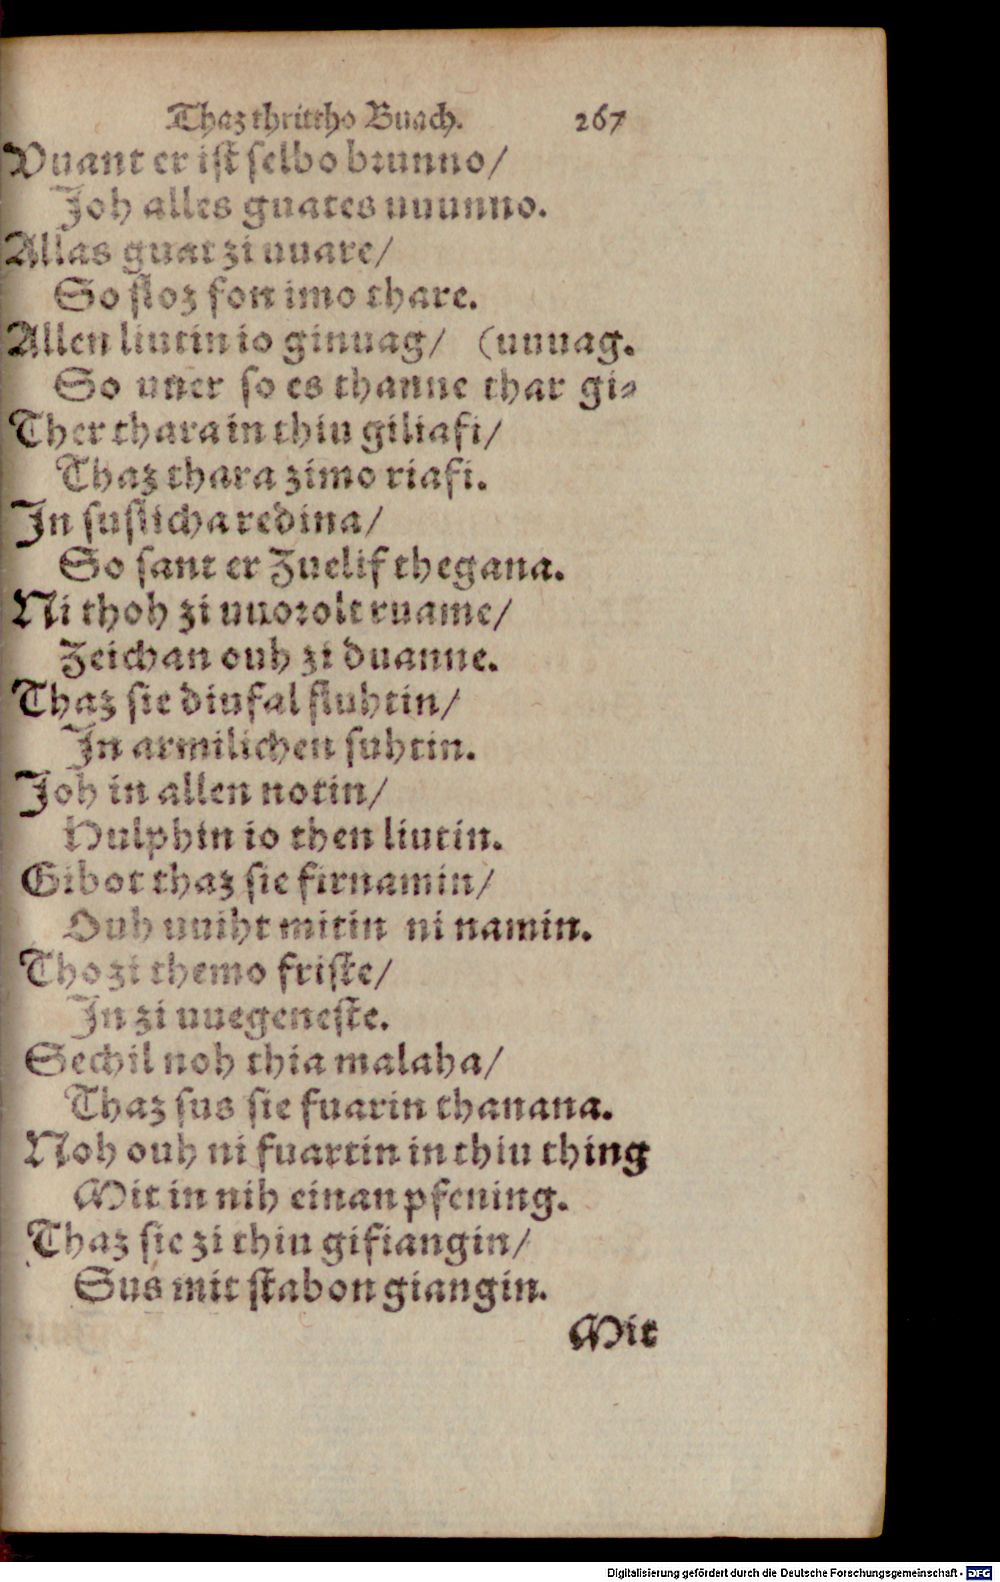 Thaz thrittho Buach. 267
Vuant er ist selbo brunno/
Joh alles guates uuunno.
Allas guat zi uuare/
So floz fon imo thare.
Allen liutin io ginuag/ (uuuag.
So uuer so es thanne thar gi⸗
Ther thara in thiu giliafi/
Thaz thara zimo riafi.
In suslicha redina/
So sant er Zuelif thegana.
Ni thoh zi uuorolt ruame/
Zeichan ouh zi duanne.
Thaz sie diufal fluhtin/
In armilichen suhtin.
Joh in allen notin/
Hulphin io then liutin.
Gibot thaz sie firnamin/
Ouh uuiht mitin ni namin.
Tho zi themo friste/
In zi uuegeneste.
Sechil noh thia malaha/
Thaz sus sie fuarin thanana.
Noh ouh ni fuartin in thiu thing
Mit in nih einan pfening.
Thaz sie zi thiu gifiangin/
Sus mit stabon giangin.
Mit
Digitalisierung gefördert durch die Deutsche Forschungsgemeinschaft - DFG